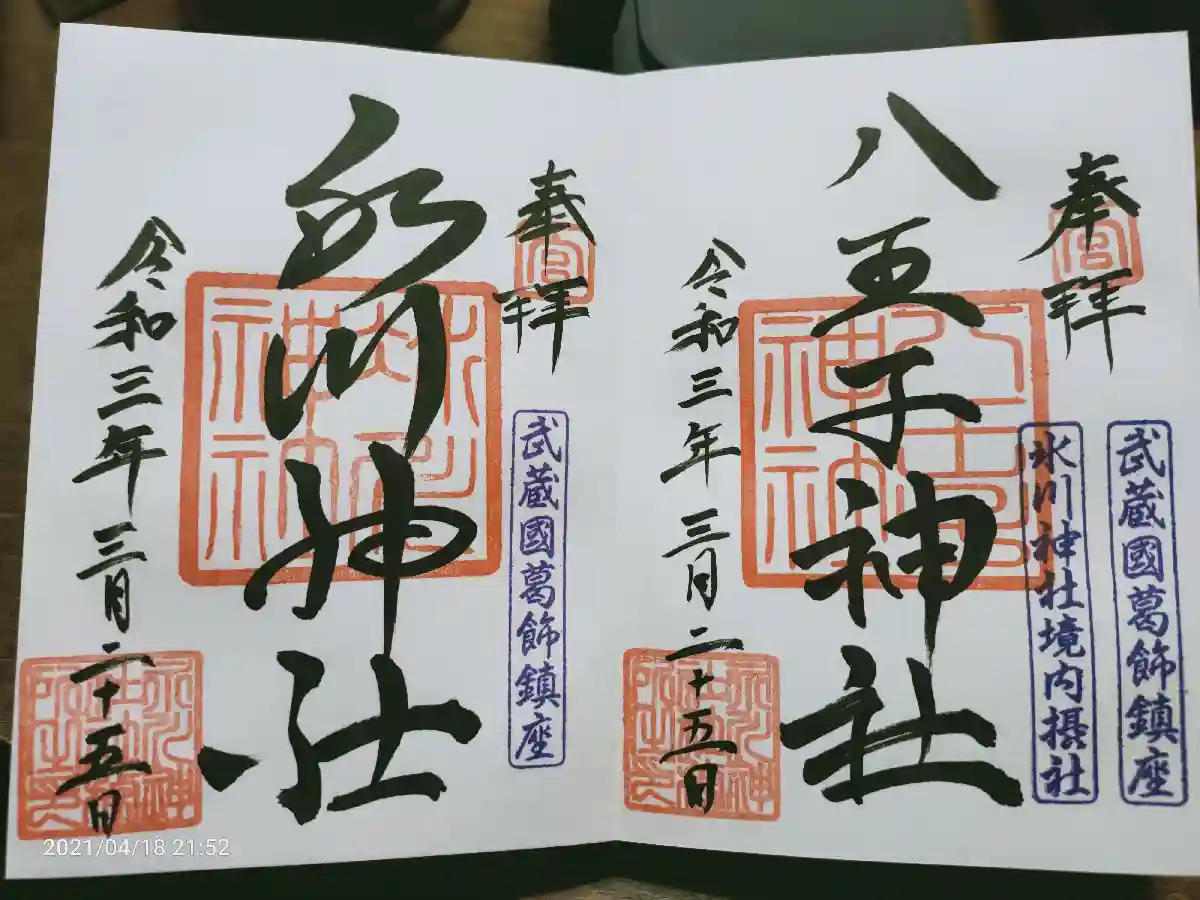 奉拝
武蔵國葛飾鎮座
氷川神社境内摂社
八王子神社
令和三年三月二十五日
奉拝
武蔵國葛飾鎮座
氷川神社
令和三年三月二十五日
2021/04/18 21:52